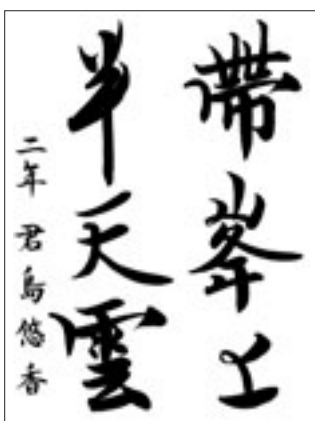 帶峯上
半天雲
二年 君島悠香